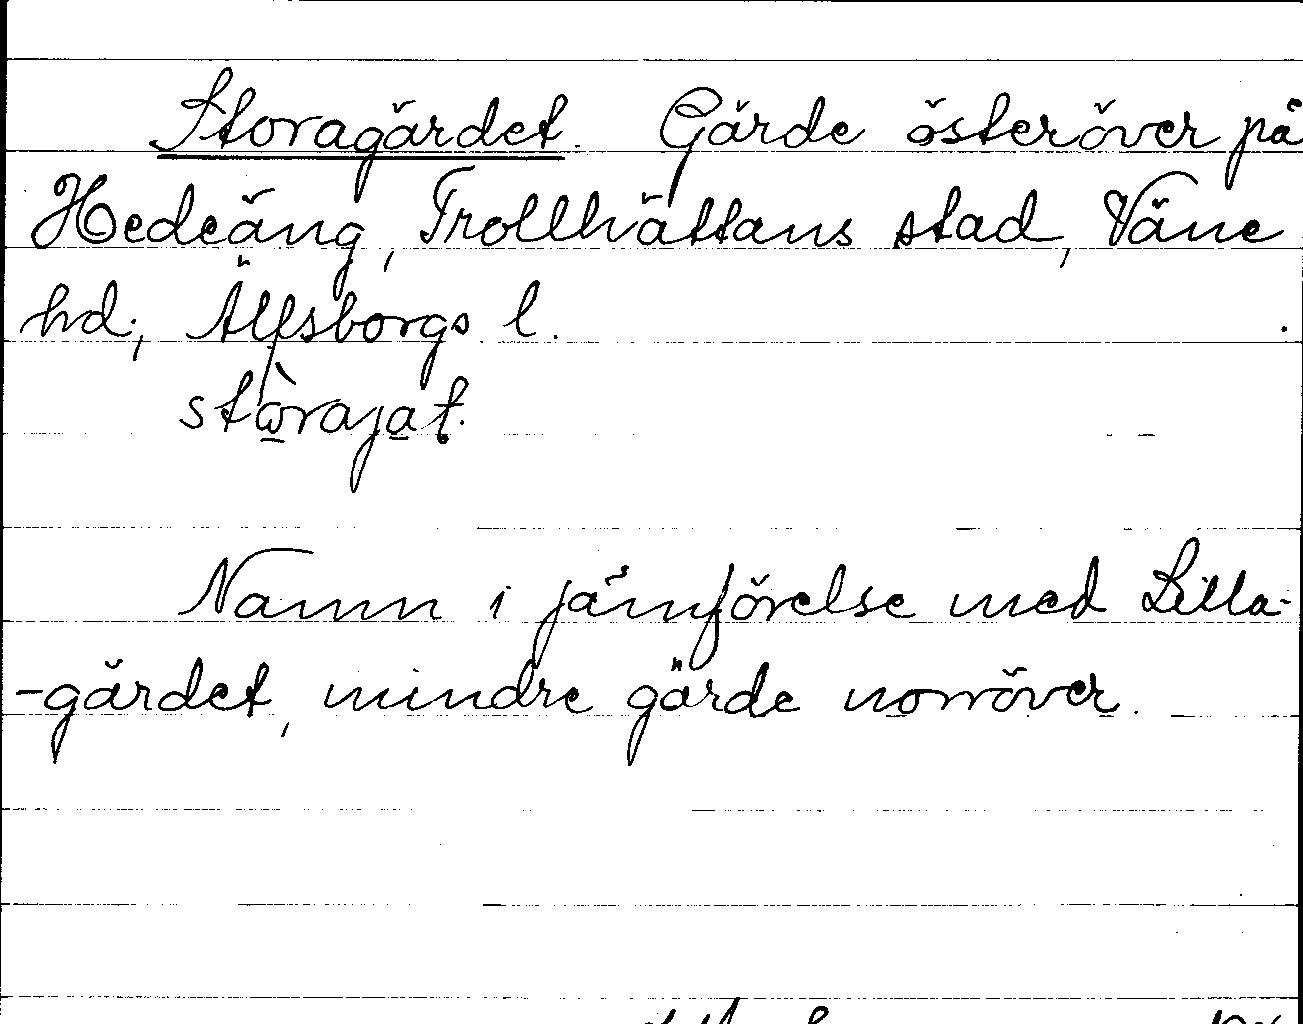 Storagärdet. Gärde österöver på
Hedeäng, Trollhättans stad, Väne
hd., Älfsborgs l.
Namn i jämförelse med Lilla-
-gärdet, mindre gärde norröver.